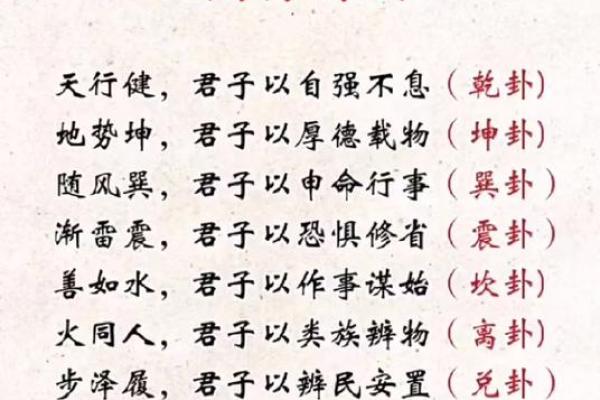 天行健，君子以自强不息（乾卦）
地势坤，君子以厚德载物（坤卦）
随风巽，君子以申命行事（巽卦）
渐雷震，君子以恐惧修省（震卦）
善如水，君子以作事谋始（坎卦）
火同人，君子以类族辨物（离卦）
步泽履，君子以辨民安置（兑卦）